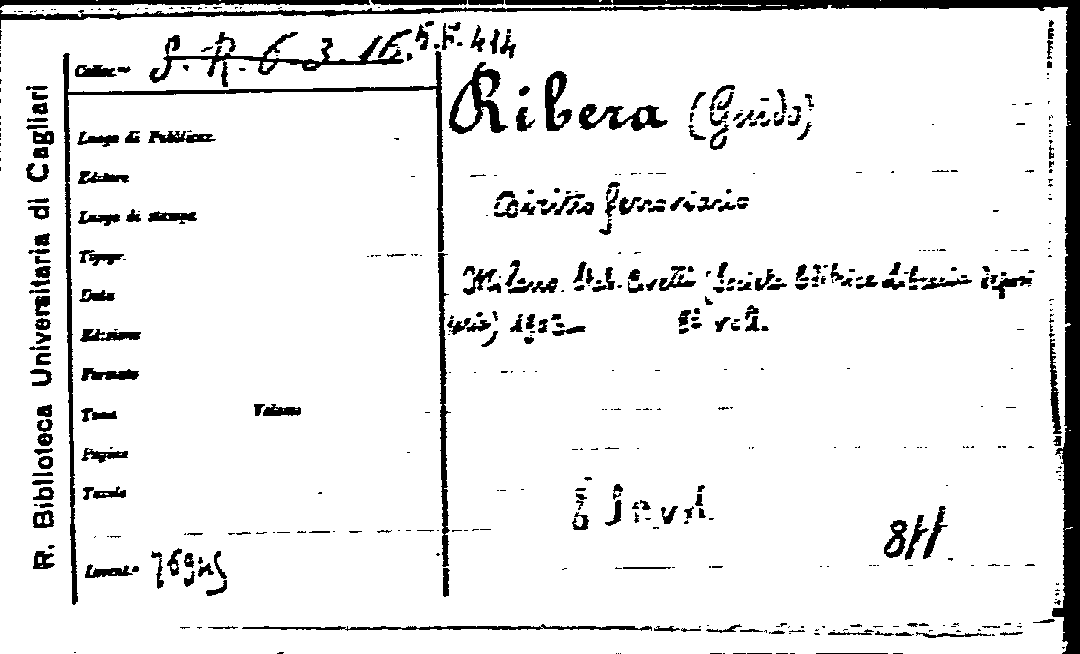 R. Biblioteca Universitaria di Cagliari
Colloc.ne S. R. 6 3. 16. 5.F. 414
Luogo di Pubblicaz.
Editore
Luogo di stampa
Tipogr.
Data
Edizione
Formato
Tomo Volume
Pagine
Tavole
Invent.°
Ribera (Guido)
Diritto ferroviario
Milano. Società Editrice Libraria
8° vol.